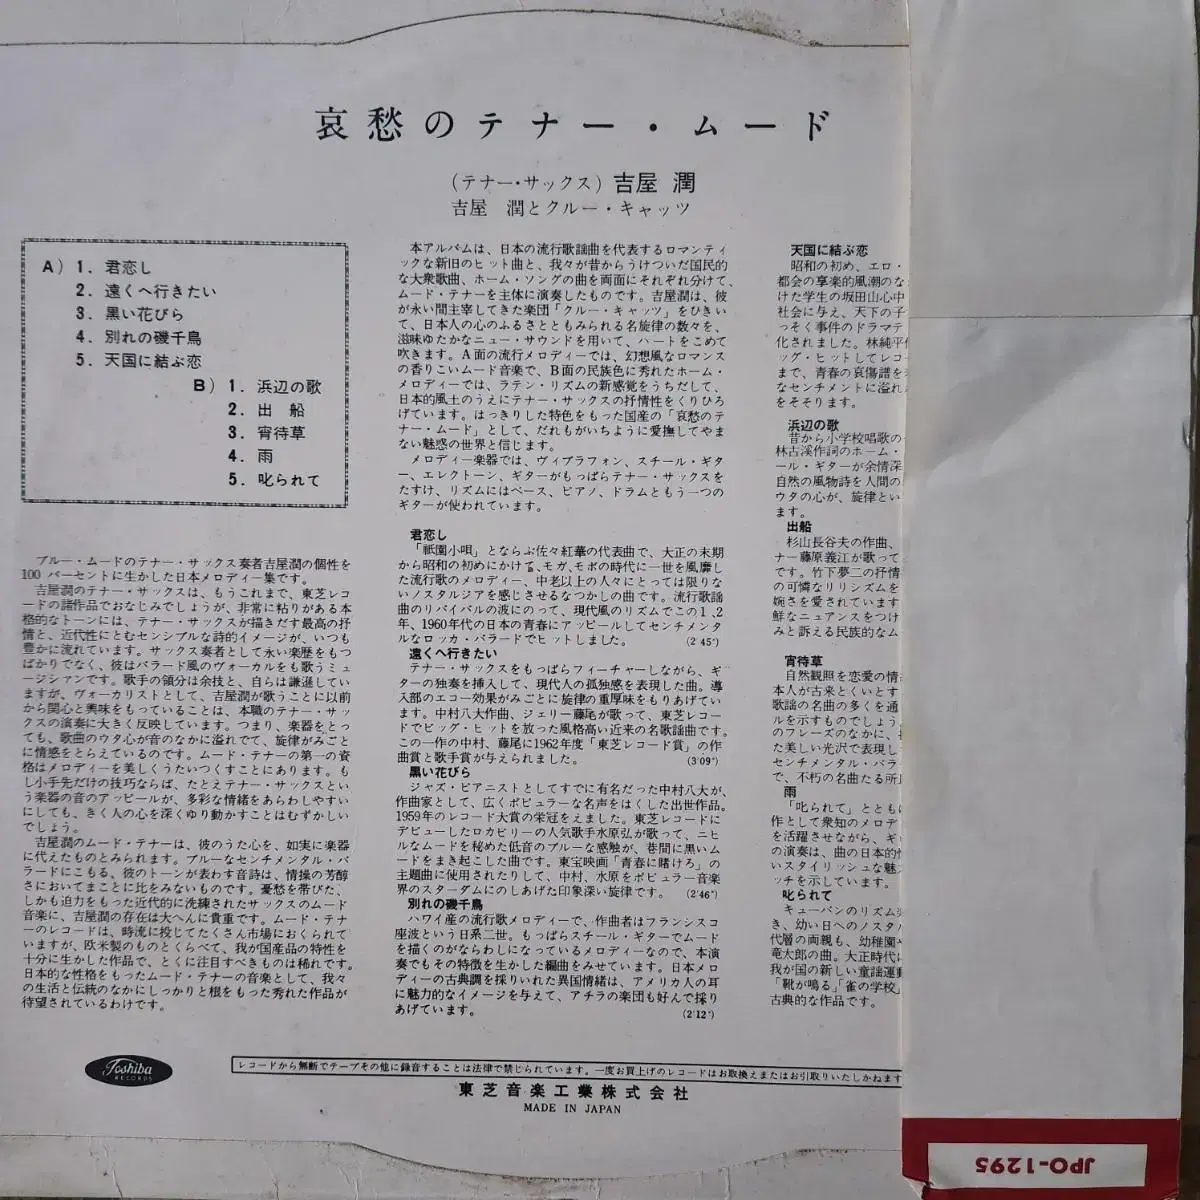 哀愁のテナー・ムード
(テナー・サックス) 吉屋 潤
吉屋 潤とクルー・キャッツ
A) 1. 君恋し
2. 遠くへ行きたい
3. 黒い花びら
4. 別れの磯千鳥
5. 天国に結ぶ恋
B) 1. 浜辺の歌
2. 出 船
3. 宵待草
4. 雨
5. 叱られて
ブルー・ムードのテナー・サックス奏者吉屋潤の個性を
100 パーセントに生かした日本メロディー集です。
吉屋潤のテナー・サックスは、もうこれまで、東芝レコ
ードの諸作品でおなじみでしょうが、非常に粘りがある本
格的なトーンには、テナー・サックスが描きだす最高の抒
情と、近代性にとむセンシブルな詩的イメージが、いつも
豊かに流れています。サックス奏者として永い楽歴をもつ
ばかりでなく、彼はバラード風のヴォーカルをも歌うミュ
ージシァンです。歌手の領分は余技と、自らは謙遜してい
ますが、ヴォーカリストとして、吉屋潤が歌うことに以前
から関心と興味をもっていることは、本職のテナー・サッ
クスの演奏に大きく反映しています。つまり、楽器をとっ
ても、歌曲のウタ心が音のなかに溢れでて、旋律がみごと
に情感をとらえているのです。ムード・テナーの第一の資
格はメロディーを美しくうたいつくすことにあります。も
し小手先だけの技巧ならば、たとえテナー・サックスとい
う楽器の音のアッピールが、多彩な情緒をあらわしやすい
にしても、きく人の心を深くゆり動かすことはむずかしい
でしょう。
吉屋潤のムード・テナーは、彼のうた心を、如実に楽器
に代えたものとみられます。ブルーなセンチメンタル・バ
ラードにこもる、彼のトーンが表わす音詩は、情操の芳醇
さにおいてまことに比をみないものです。憂愁を帯びた、
しかも迫力をもった近代的に洗練されたサックスのムード
音楽に、吉屋潤の存在は大へんに貴重です。ムード・テナ
ーのレコードは、時流に投じてたくさん市場におくられて
いますが、欧米製のものとくらべて、我が国産品の特性を
十分に生かした作品で、とくに注目すべきものは稀れです。
日本的な性格をもったムード・テナーの音楽として、我々
の生活と伝統のなかにしっかりと根をもった秀れた作品が
待望されているわけです。
本アルバムは、日本の流行歌謡曲を代表するロマンティ
ックな新旧のヒット曲と、我々が昔からうけついだ国民的
な大衆歌曲、ホーム・ソングの曲を両面にそれぞれ分けて、
ムード・テナーを主体に演奏したものです。吉屋潤は、彼
が永い間主宰してきた楽団「クルー・キャッツ」をひきい
て、日本人の心のふるさとともみられる名旋律の数々を、
滋味ゆたかなニュー・サウンドを用いて、ハートをこめて
吹きます。A面の流行メロディーでは、幻想風なロマンス
の香りこいムード音楽で、B面の民族色に秀れたホーム・
メロディーでは、ラテン・リズムの新感覚をうちだして、
日本的風土のうえにテナー・サックスの抒情性をくりひろ
げています。はっきりした特色をもった国産の「哀愁のテ
ナー・ムード」として、だれもがいちように愛撫してやま
ない魅惑の世界と信じます。
メロディー楽器では、ヴィブラフォン、スチール・ギタ
ー、エレクトーン、ギターがもっぱらテナー・サックスを
たすけ、リズムにはベース、ピアノ、ドラムともう一つの
ギターが使われています。
君恋し
「祇園小唄」とならぶ佐々紅華の代表曲で、大正の末期
から昭和の初めにかけて、モガ、モボの時代に一世を風靡し
た流行歌のメロディー、中老以上の人々にとっては限りな
いノスタルジアを感じさせるなつかしの曲です。流行歌謡
曲のリバイバルの波にのって、現代風のリズムでこの1、2
年、1960年代の日本の青春にアッピールしてセンチメンタ
ルなロッカ・バラードでヒットしました。 (2'45")
遠くへ行きたい
テナー・サックスをもっぱらフィーチャーしながら、ギ
ターの独奏を挿入して、現代人の孤独感を表現した曲。導
入部のエコー効果がみごとに旋律の重厚味をもりあげてい
ます。中村八大作曲、ジェリー藤尾が歌って、東芝レコー
ドでビッグ・ヒットを放った風格高い近来の名歌謡曲です。
この一作の中村、藤尾に1962年度「東芝レコード賞」の作
曲賞と歌手賞が与えられました。 (3'09")
黒い花びら
ジャズ・ピアニストとしてすでに有名だった中村八大が、
作曲家として、広くポピュラーな名声をはくした出世作品。
1959年のレコード大賞の栄冠をえました。東芝レコードに
デビューしたロカビリーの人気歌手水原弘が歌って、ニヒ
ルなムードを秘めた低音のブルーな感触が、巷間に黒いム
ードをまき起こした曲です。東宝映画「青春に賭けろ」の
主題曲に使用されたりして、中村、水原をポピュラー音楽
界のスターダムにのしあげた印象深い旋律です。 (2'46")
別れの磯千鳥
ハワイ産の流行歌メロディーで、作曲者はフランシスコ
座波という日系二世。もっぱらスチール・ギターでムード
を描くのがならわしになっているメロディーなので、本演
奏でもその特徴を生かした編曲をみせています。日本メロ
ディーの古典調を採りいれた異国情緒は、アメリカ人の耳
に魅力的なイメージを与えて、アチラの楽団も好んで採り
あげています。 (2'12")
天国に結ぶ恋
昭和の初め、エロ・
都会の享楽的風潮のな
けた学生の坂田山心中
社会に与え、天下の子
っそく事件のドラマテ
化されました。林純平作
ッグ・ヒットしてレコー
まで、青春の哀傷譜を
なセンチメントに溢れ
をそそります。
浜辺の歌
昔から小学校唱歌の
林古溪作詞のホーム・
ール・ギターが余情深
自然の風物詩を人間の
ウタの心が、旋律とい
ます。
出船
杉山長谷夫の作曲、
ナー藤原義江が歌って
です。竹下夢二の抒情
の可憐なリリシズムを
婉さを愛されています
鮮なニュアンスをつけ
みと訴える民族的なム
宵待草
自然観照を恋愛の情
本人が古来とくいとす
歌謡の名曲の多くを通
ルを示すものでしょう
のフレーズのなかに、
た美しい光沢で表現し
センチメンタル・バラ
で、不朽の名曲たる所
雨
「叱られて」ととも
作として衆知のメロデ
を活躍させながら、ギ
の演奏は、曲の日本的
いスタイリッシュな魅
ッチを示しています。
叱られて
キューバンのリズム
き、幼い日へのノスタル
代層の両親も、幼稚園や
竜太郎の曲。大正時代に
我が国の新しい童謡運動
「靴が鳴る」「雀の学校」
古典的な作品です。
Toshiba
RECORDS
レコードから無断でテープその他に録音することは法律で禁じられています。一度お買上げのレコードはお取換えまたはお引取りいたしかねます
東芝音楽工業株式会社
MADE IN JAPAN
JPO-1295